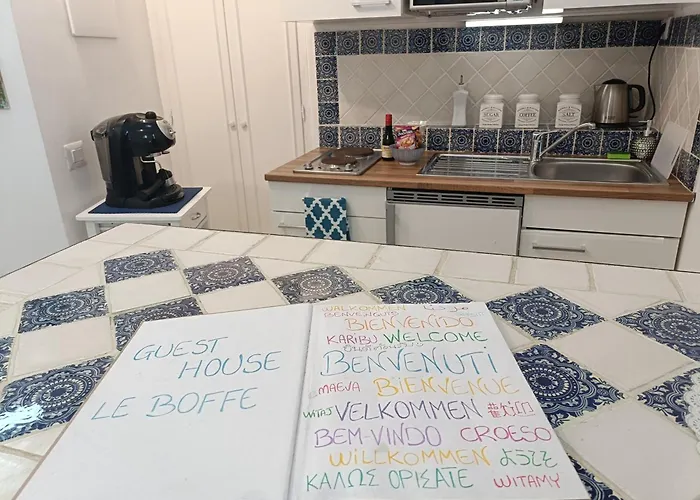 SUGAR
COFFEE
SALT
GUEST
HOUSE
LE BOFFE
WALKOM
BENVENGUTS
BIENVENIDO
KARIBU WELCOME
BENVENUTI
MAEVA BIENVENUE
WITAJ VELKOMMEN 歡迎
BEM-VINDO CROESO
WILLKOMMEN ようこそ
ΚΑΛΩΣ ΟΡΙΣΑΤΕ WITAMY